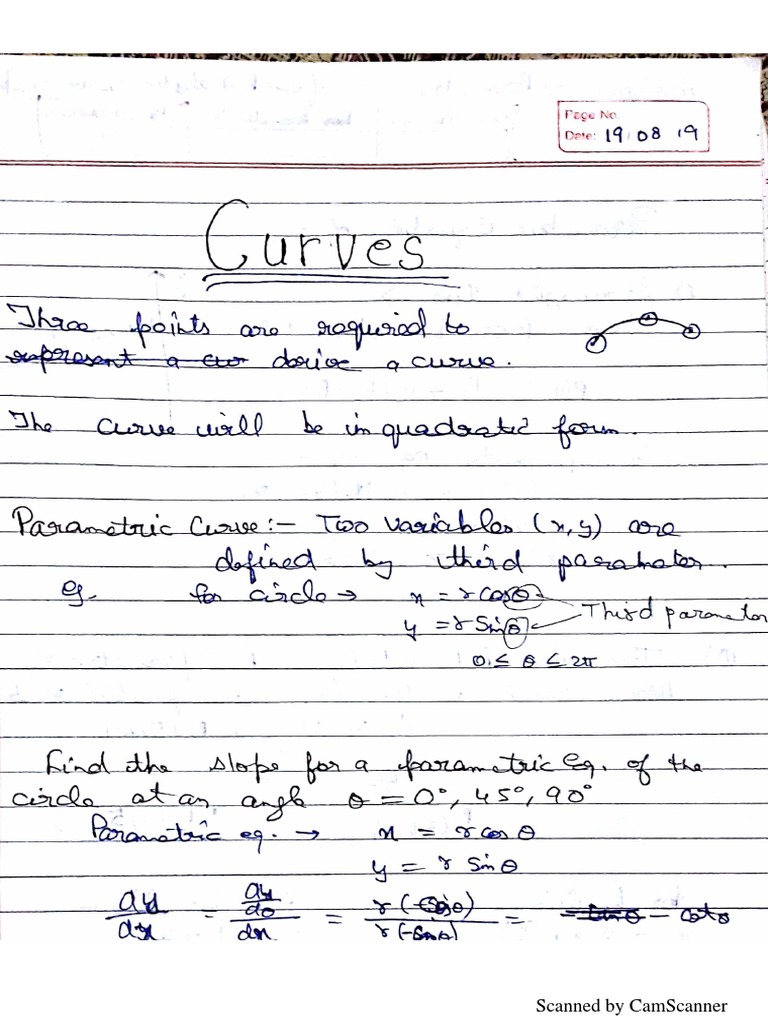 Page No.
Date: 19 08 19
Curves
Three points are required to
represent a cur derive a curve.
The curve will be in quadratic form.
Parametric Curve:- Two variables (x,y) are
defined by third parameter.
eg. for circle → x = r cos θ
y = r Sin θ Third parameter
0 ≤ θ ≤ 2π
Find the slope for a parametric Eq. of the
circle at an angle θ = 0°, 45°, 90°
Parametric eq. → x = r cos θ
y = r Sin θ
dy/dx = dy/dθ / dx = r( θ) / r(-Sin θ) = - tan θ - cot θ
Scanned by CamScanner